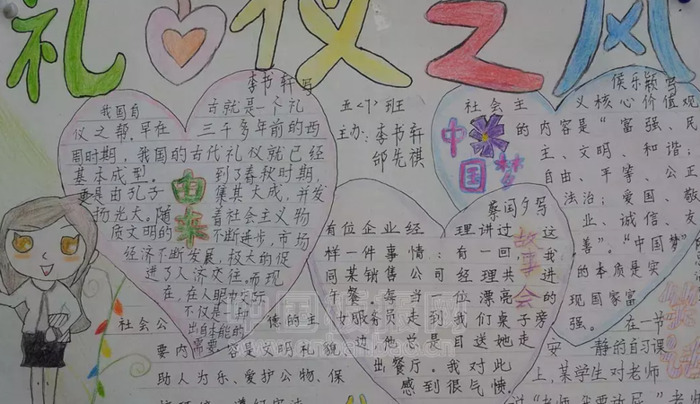 礼仪之风
李书轩写
我国自古就是一个礼
仪之帮.早在三千多年前的西
周时期,我国的古代礼仪就已经
基本成型.到了春秋时期,
更是由孔子集其大成,并发
扬光大。随着社会主义物
质文明的不断进步,市场
经济不断发展,极大的促
进了人济交往。而现
在,在人眼
不仅是
出自本能的
需要
由来
五<1>班
主办:李书轩
邱先祺
侯乐颖写
社会主义核心价值观
的内容是“富强、民
主、文明、和谐;
自由、平等、公正
法治;爱国、敬
业、诚信、友
善”。“中国梦”
的本质是实
现国家富
强。
中国梦
蔡国夕写
有位企业经理讲过这
样一件事情:有一回,我
同某销售公司经理共进
午餐。每当一位漂亮的
女服务员走到我们桌子旁
边,他总是目送她走
出餐厅。我对此
感到很气愤,
故事会
社会公德的主
要内容是文明礼貌、
助人为乐、爱护公物、保
在一节
安静的自习课
上,某学生对老师